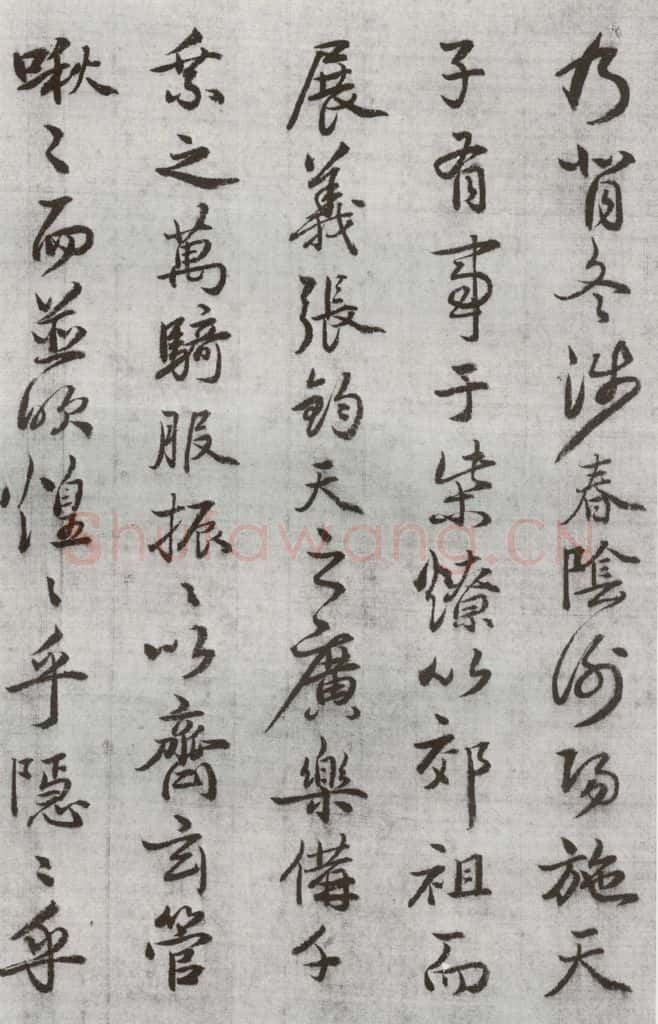 乃背冬涉春陰謝陽施天
子有事于柴燎以郊祖而
展義張鈞天之廣樂備千
乘之萬騎服振〻以齊玄管
啾〻而並吹煌〻乎隱〻乎
Shufawang.CN